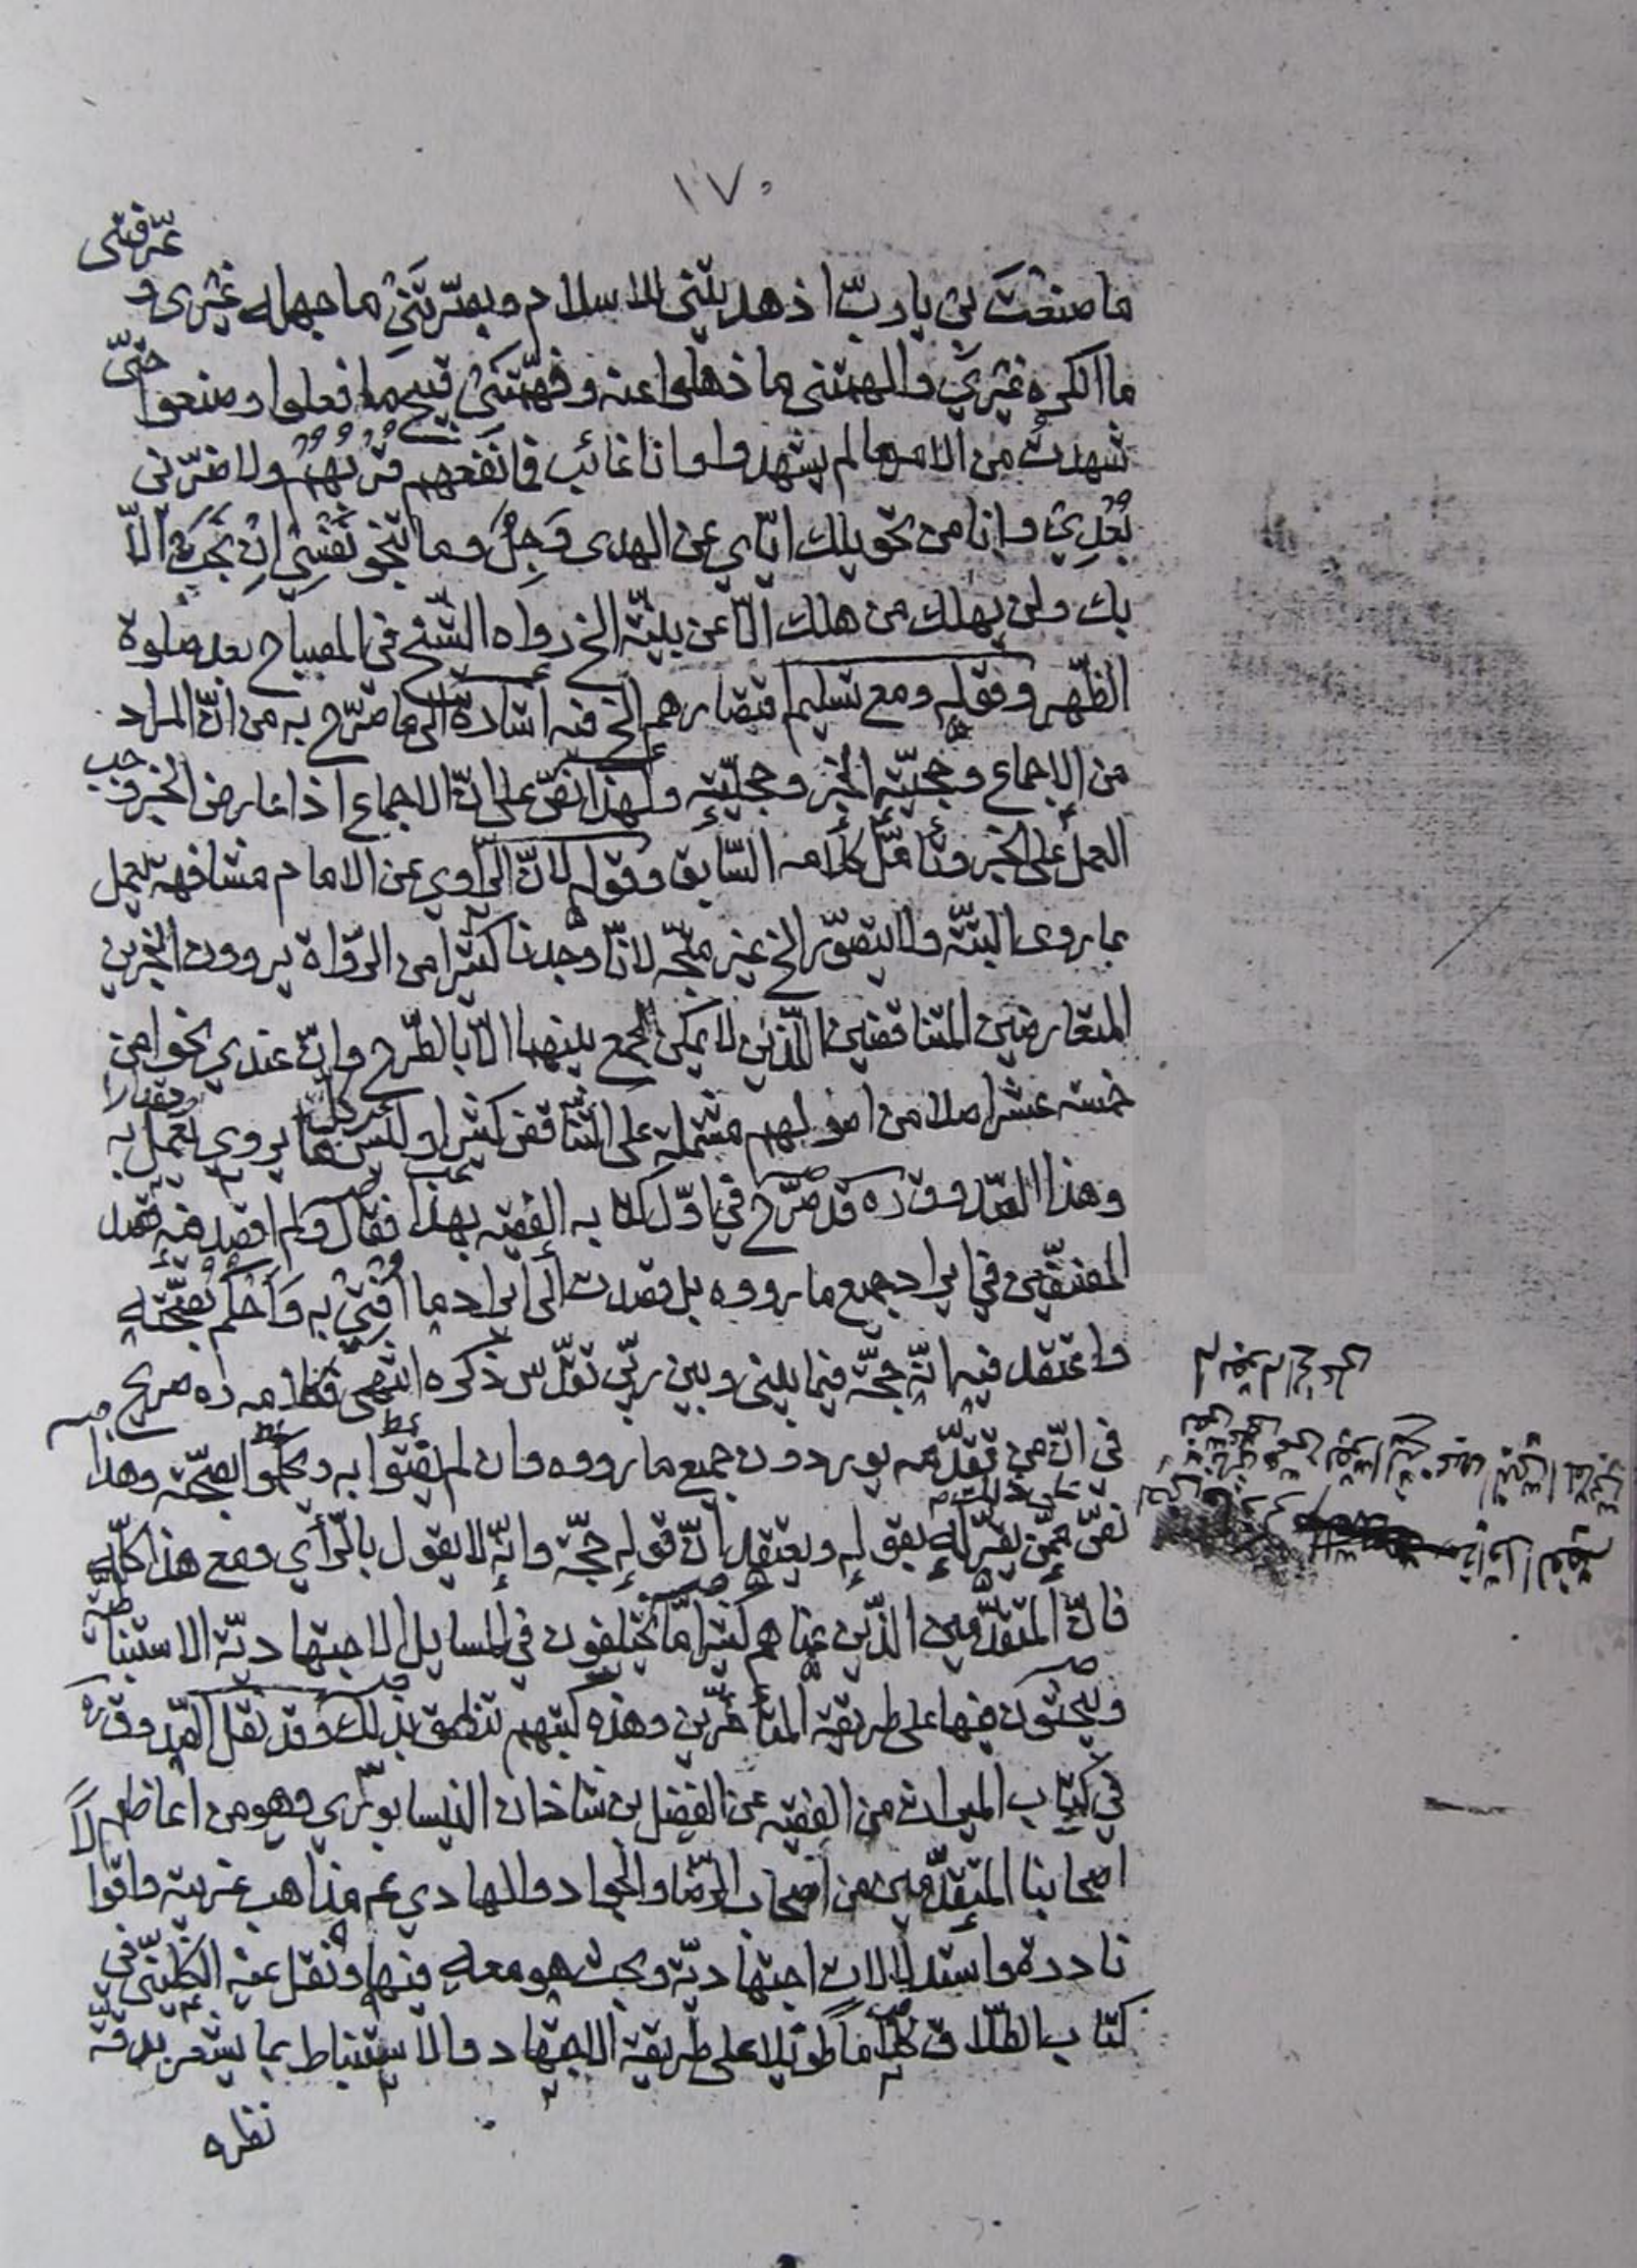 ١٧٠
ما صنعت بي يا رب اذ هديتني للاسلام وبصرتني ما جهله غيري وعرفتني
ما انكره غيري والهمتني ما ذهلوا عنه وفهمتني قبيح ما فعلوا وصنعوا حتى
شهدت من الامر ما لم يشهدوا وانا غائب فما نفعهم قربهم ولا ضرني
بعدي وانا من تحويلك اياي عن الهدى وجل وما تنجو نفسي ان نجت الا
بك ولن يهلك من هلك الا عن بينة الخ رواه الشيخ في المصباح بعد صلوة
الظهر وقوله ومع تسليم اقتصارهم الخ فيه اشارة الى ما صرح به من ان المراد
من الاجماع وحجيته الخبر وحجيته ولهذا نص على ان الاجماع اذا عارض الخبر وجب
العمل على الخبر وتأمل كلامه السابق وقوله لان الراوي عن الامام مشافهة يعمل
بما روى البتة ولا يتصور الخ غير متجه لانا وجدنا كثيرا من الرواة يروون الخبرين
المتعارضين المتناقضين اللذين لا يمكن الجمع بينهما الا بالطرح وان عندي نحوا من
خمسة عشر اصلا من اصولهم مشتملة على التناقض كثيرا وليس كل ما يروي يعمل به
وهذا الصدوق ره قد صرح في اول كتابه الفقيه بهذا فقال ولم اقصد فيه قصد
المصنفين في ايراد جميع ما رووه بل قصدت الى ايراد ما افتي به واحكم بصحته
واعتقد فيه انه حجة فيما بيني وبين ربي تقدس ذكره انتهى فكلامه ره صريح
في ان من تقدمه يوردون جميع ما رووه وان لم يفتوا به ويحكموا بصحته وهذا
نص ممن يقر له بقوله ويعتقد ان قوله حجة وانه لا يقول بالرأي ومع هذا كله
فان المتقدمين الذين عناهم كثيرا ما يختلفون في المسايل الاجتهادية الاستنباطية
ويبحثون فيها على طريقة المتأخرين وهذه كتبهم تنطق بذلك وقد نقل الصدوق ره
في كتاب الميراث من الفقيه عن الفضل بن شاذان النيسابوري وهو من اعاظم
اصحابنا المتقدمين من اصحاب الرضا والجواد والهادي عم مذاهب غريبة واقوالا
نادرة واستدلالات اجتهادية وبحث هو معه فيها ونقل عنه الكليني في
كتاب الطلاق كلاما طويلا على طريقة الاجتهاد والاستنباط بما يشعر بدقة
نظره